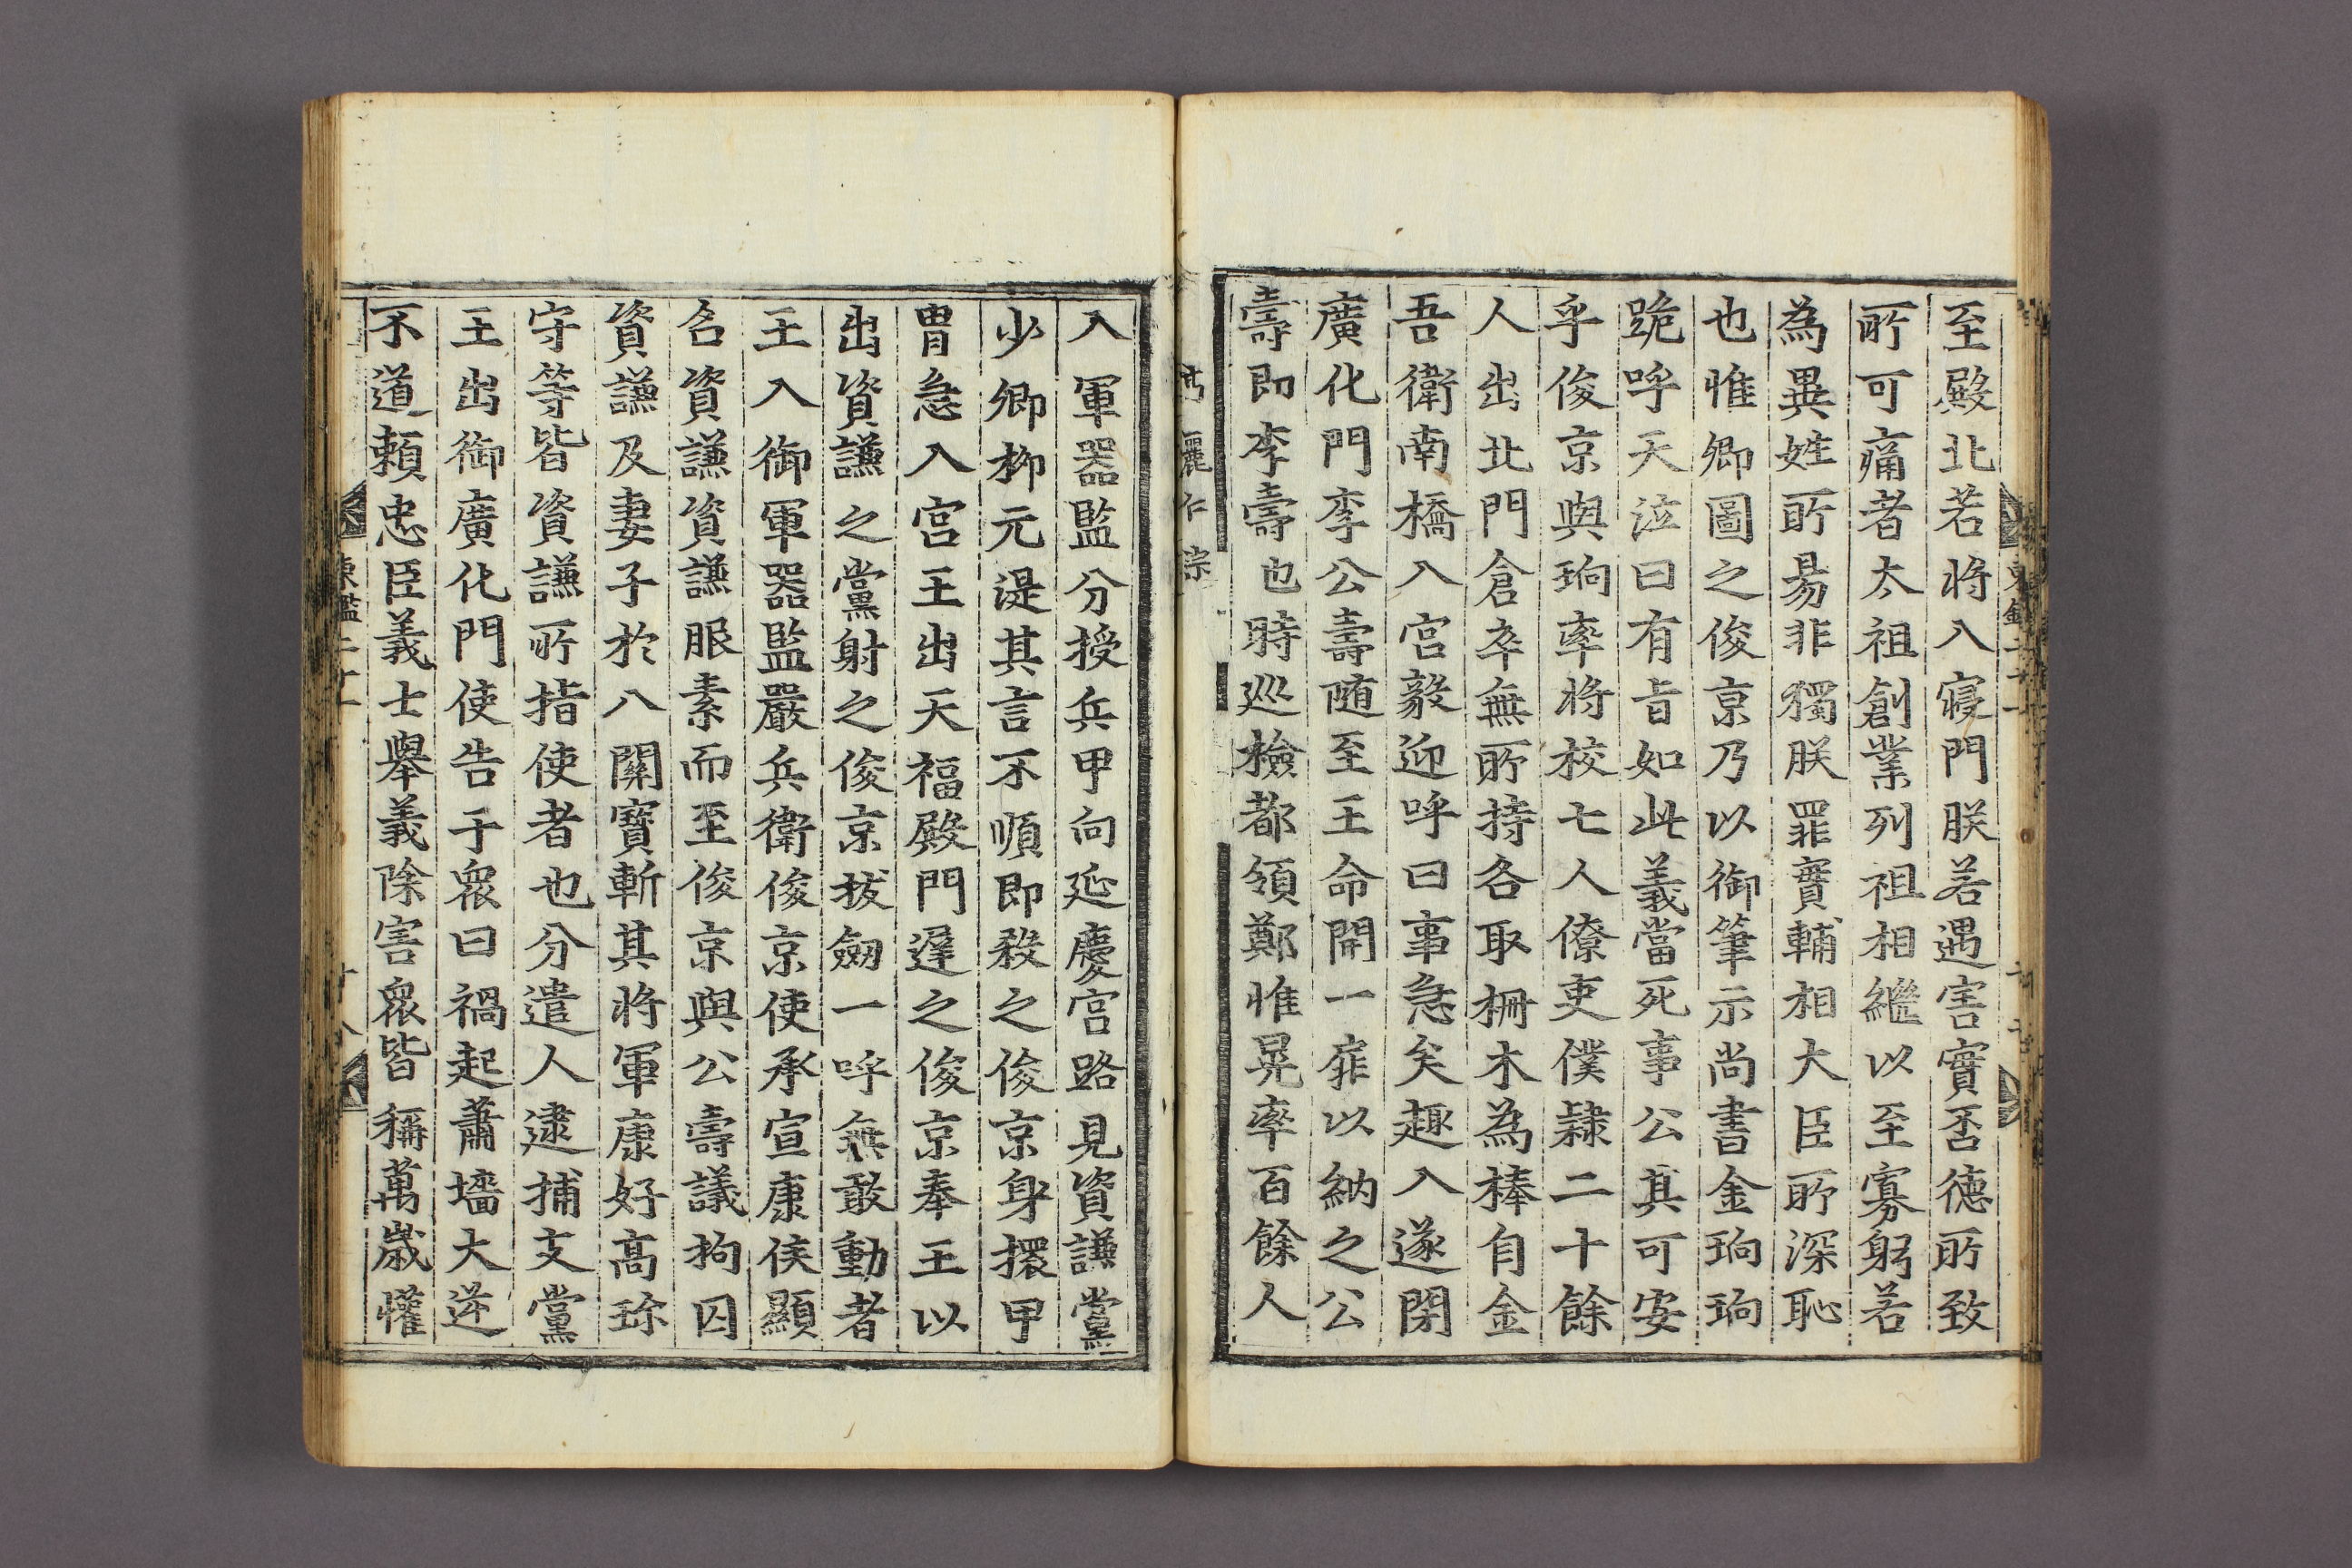 至殿北若將入寢門朕若遇害實否德所致
所可痛者太祖創業列祖相繼以至寡躬若
為異姓所易非獨朕罪實輔相大臣所深恥
也惟卿圖之俊京乃以御筆示尚書金珦珦
跪呼天泣曰有旨如此義當死事公其可安
乎俊京與珦率將校七人僚吏僕隸二十餘
人出北門倉卒無所持各取柵木為棒自金
吾衛南橋入宮毅迎呼曰事急矣趣入遂閉
廣化門李公壽随至王命開一扉以納之公
壽即李壽也時巡檢都領鄭惟晃率百餘人
高麗仁宗
入軍器監分授兵甲向延慶宮路見資謙黨
少卿柳元湜其言不順即殺之俊京身擐甲
胄急入宮王出天福殿門遲之俊京奉王以
出資謙之黨射之俊京拔劒一呼無敢動者
王入御軍器監嚴兵衛俊京使承宣康侯顯
召資謙資謙服素而至俊京與公壽議拘囚
資謙及妻子於八關寶斬其將軍康好高珎
守等皆資謙所指使者也分遣人逮捕支黨
王出御廣化門使告于衆曰禍起蕭墻大逆
不道賴忠臣義士舉義除害衆皆稱萬歲懽
東鑑二十
十八